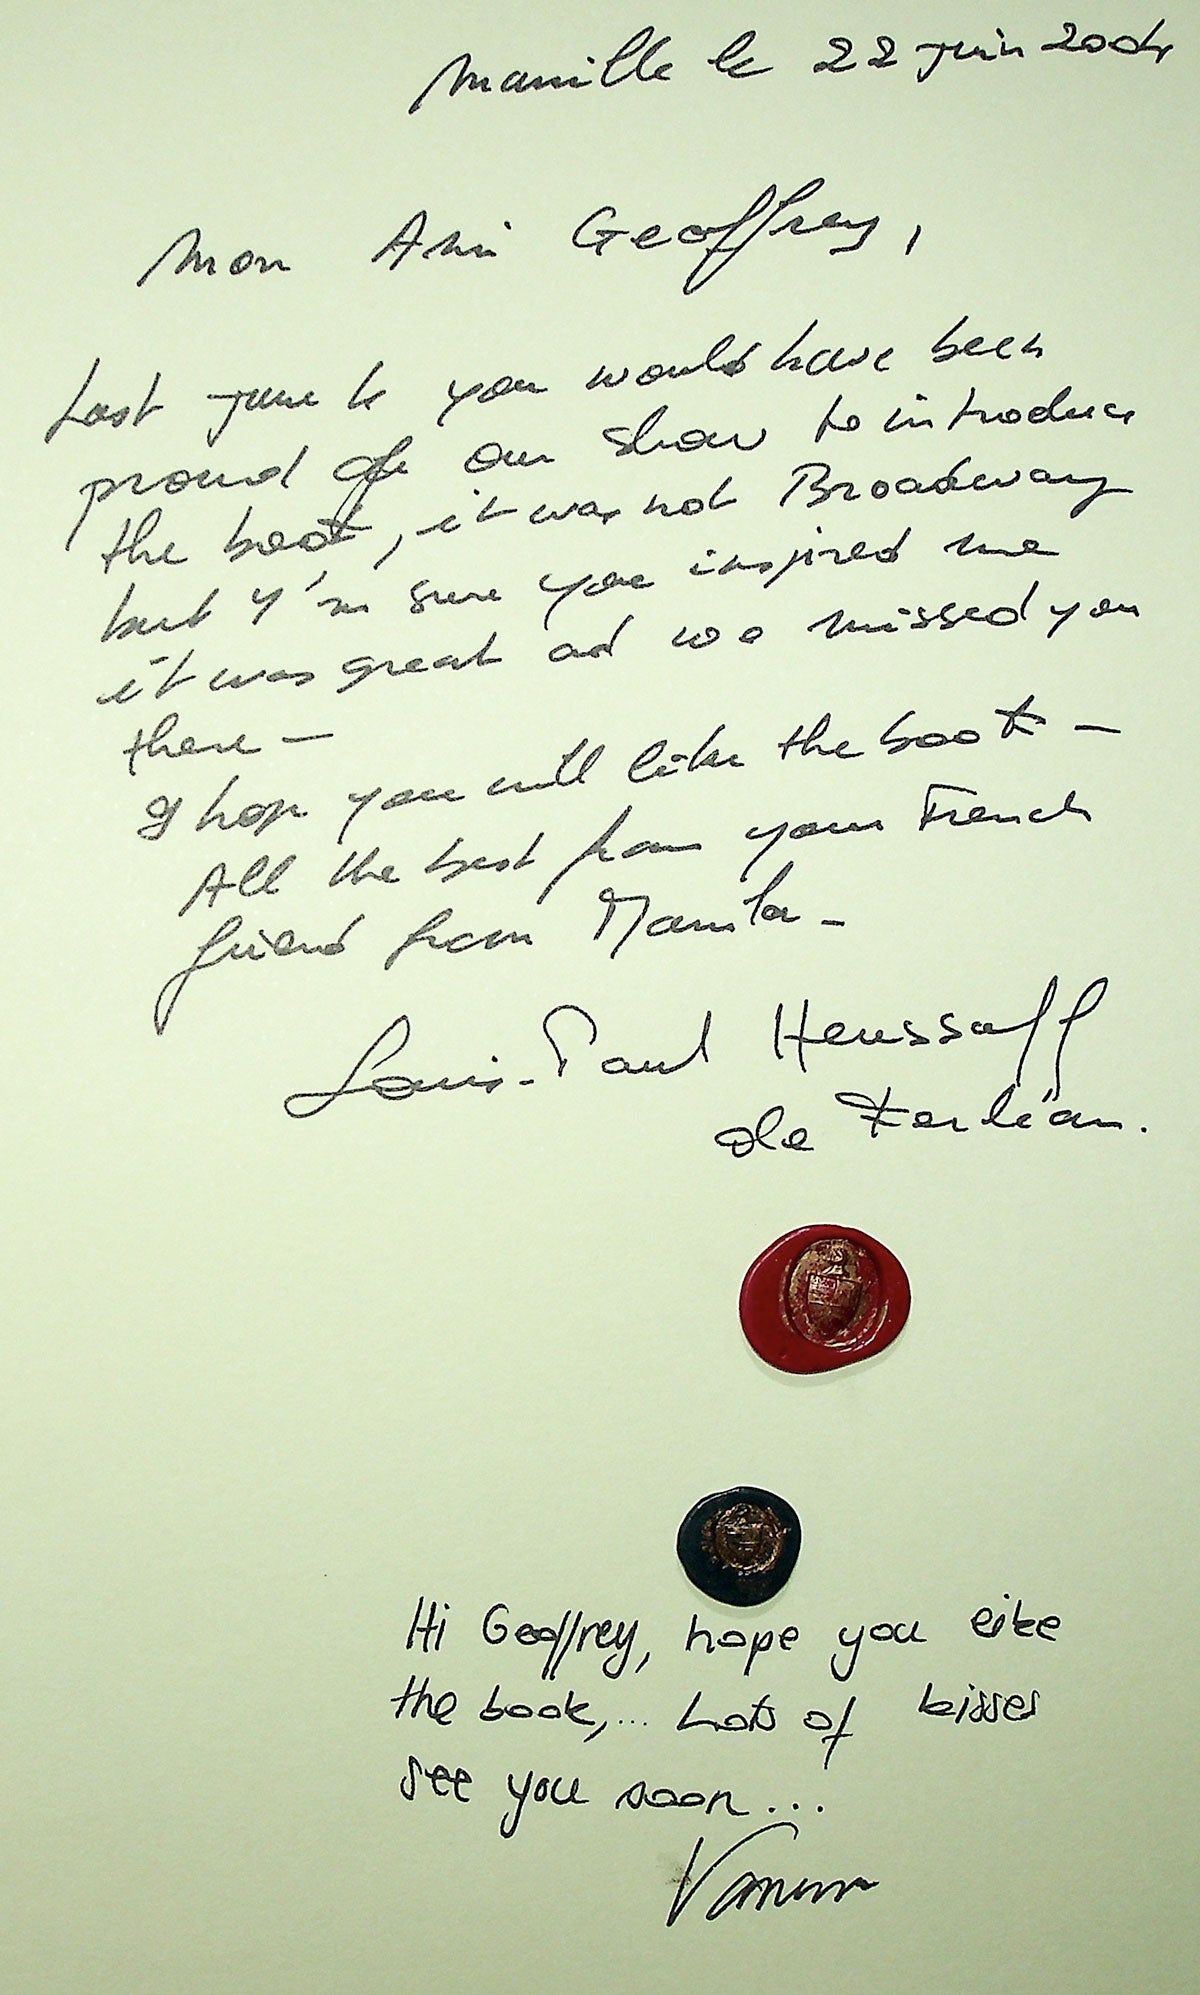 Manille le 22 juin 2004
Mon Ami Geoffrey,
Last June you would have been
proud of our show to introduce
the book, it was not Broadway
but I'm sure you inspired me
it was great ad we missed you
there —
I hope you will like the book —
All the best from your French
friend from Manila —
Louis-Paul Heussaff
de
Hi Geoffrey, hope you like
the book,... Lots of kisses
see you soon...